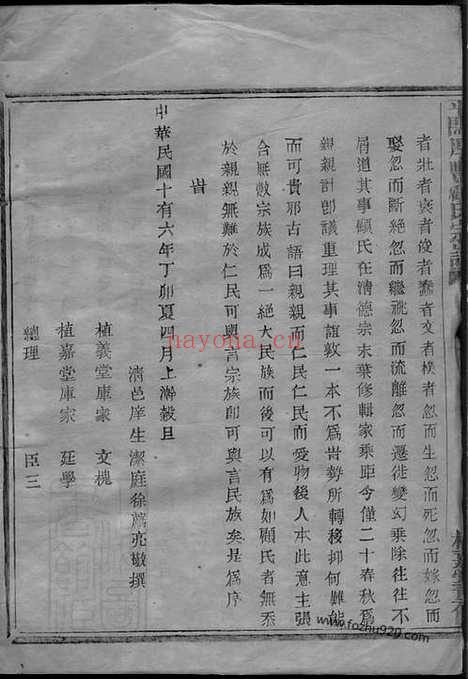 者壯者衰者俊者蠢者文者樸者忽而生忽而死忽而嫁忽而
娶忽而斷絕忽而繼祧忽而流離忽而遷徙變幻乘除往往不
屑道其事顧氏在清德宗末葉修輯家乘距今僅二十春秋為
親親計卽議重理其事誼敦一本不為時勢所轉移抑何難能
而可貴耶古語曰親親而仁民仁民而愛物後人本此意主張
合無數宗族成為一絕大民族而後可以有為如顧氏者無忝
於親親無難於仁民可與言宗族卽可與言民族矣是為序
旹
中華民國十有六年丁卯夏四月上澣穀旦
清邑庠生潔庭徐為亮敬撰
植義堂庫家 文槐
植嘉堂庫家 廷學
總理 臣三
nayona.cn
www.fozhu920.com